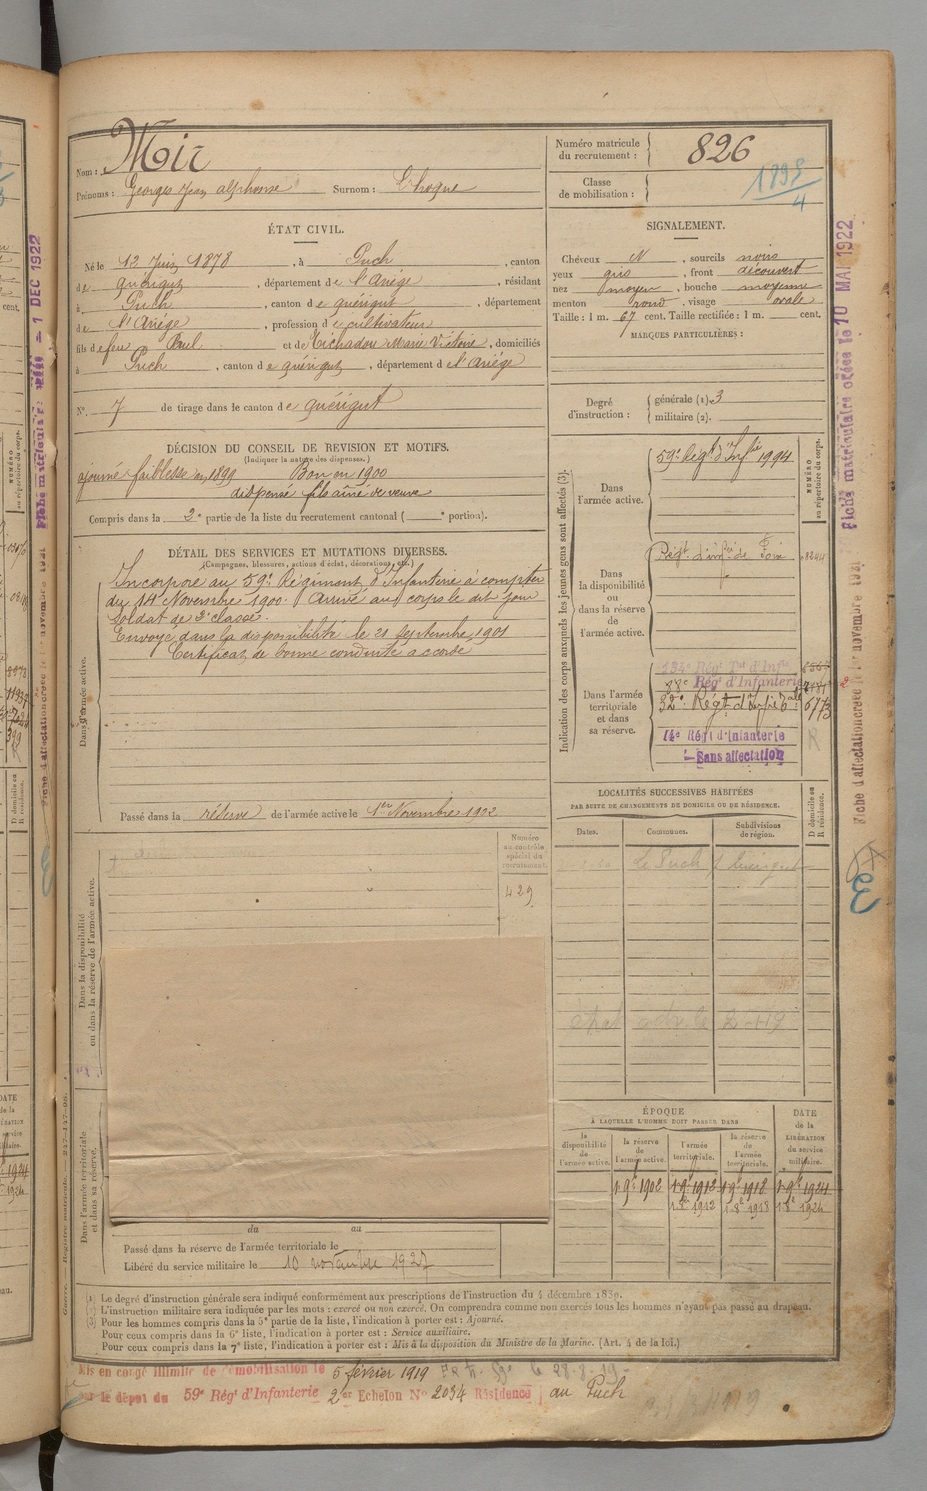 Nom : Mir
Prénoms : Georges Jean alphonse Surnom :
Numéro matricule du recrutement : 826
Classe de mobilisation : 1898/4
ÉTAT CIVIL.
Né le 12 Juin 1878, à Puch, canton
de quérigut, département de l'Ariége, résidant
à Puch, canton de quérigut, département
de l'Ariége, profession de cultivateur
fils de feu Paul et de Michadou Marie Victoire, domiciliés
à Puch, canton de quérigut, département de l'Ariége
N° 7 de tirage dans le canton de quérigut
SIGNALEMENT.
Cheveux N, sourcils noirs
yeux gris, front découvert
nez moyen, bouche moyenne
menton rond, visage ovale
Taille : 1 m. 67 cent. Taille rectifiée : 1 m. cent.
MARQUES PARTICULIÈRES :
Degré d'instruction : générale (1). 3
militaire (2).
DÉCISION DU CONSEIL DE REVISION ET MOTIFS.
(Indiquer la nature des dispenses.)
ajourné faiblesse en 1899 Bon en 1900
dispensé fils aîné de veuve
Compris dans la 2e partie de la liste du recrutement cantonal ( e portion).
DÉTAIL DES SERVICES ET MUTATIONS DIVERSES.
(Campagnes, blessures, actions d'éclat, décorations, etc.)
Dans l'armée active.
Incorporé au 59e Régiment d'Infanterie à compter
du 14 Novembre 1900. Arrivé au corps le dit jour
soldat de 2e classe.
Envoyé dans la disponibilité le 21 septembre 1901
Certificat de bonne conduite accordé
Passé dans la réserve de l'armée active le 1er Novembre 1902
Indication des corps auxquels les jeunes gens sont affectés (3).
NUMÉRO au répertoire du corps.
Dans l'armée active.
59e Régt d'Infie 1994
Dans la disponibilité ou dans la réserve de l'armée active.
Régt d'infie de Foix
Dans l'armée territoriale et dans sa réserve.
134e Régt Tal d'Infie
28e Régt d'Infanterie
32e Régt d'Infie 6773
14e Régt d'Infanterie
Sans affectation
R
LOCALITÉS SUCCESSIVES HABITÉES
PAR SUITE DE CHANGEMENTS DE DOMICILE OU DE RÉSIDENCE.
Dates. Communes. Subdivisions de région. D domicile ou R résidence.
Le Puch
Numéro au contrôle spécial du recrutement.
429
Dans la disponibilité ou dans la réserve de l'armée active.
Dans l'armée territoriale et dans sa réserve.
ÉPOQUE
À LAQUELLE L'HOMME DOIT PASSER DANS
DATE de la LIBÉRATION du service militaire.
la disponibilité de l'armée active.
la réserve de l'armée active.
l'armée territoriale.
la réserve de l'armée territoriale.
1 9e 1902 1 9e 1912 1 9e 1918 1 9e 1924
1 8e 1912 1 8e 1918 1 8e 1924
du au
Passé dans la réserve de l'armée territoriale le
Libéré du service militaire le 10 novembre 1927
(1) Le degré d'instruction générale sera indiqué conformément aux prescriptions de l'instruction du 4 décembre 1889.
(2) L'instruction militaire sera indiquée par les mots : exercé ou non exercé. On comprendra comme non exercés tous les hommes n'ayant pas passé au drapeau.
(3) Pour les hommes compris dans la 5e partie de la liste, l'indication à porter est : Ajourné.
Pour ceux compris dans la 6e liste, l'indication à porter est : Service auxiliaire.
Pour ceux compris dans la 7e liste, l'indication à porter est : Mis à la disposition du Ministre de la Marine. (Art. 4 de la loi.)
Mis en congé illimité de démobilisation le 5 février 1919
par le dépôt du 59e Régt d'Infanterie 2er Echelon N° 2034 Résidence au Puch
Fiche matriculaire créée le 10 MAI 1922
Fiche d'affectation créée le 1er novembre 1921
1 DEC 1922